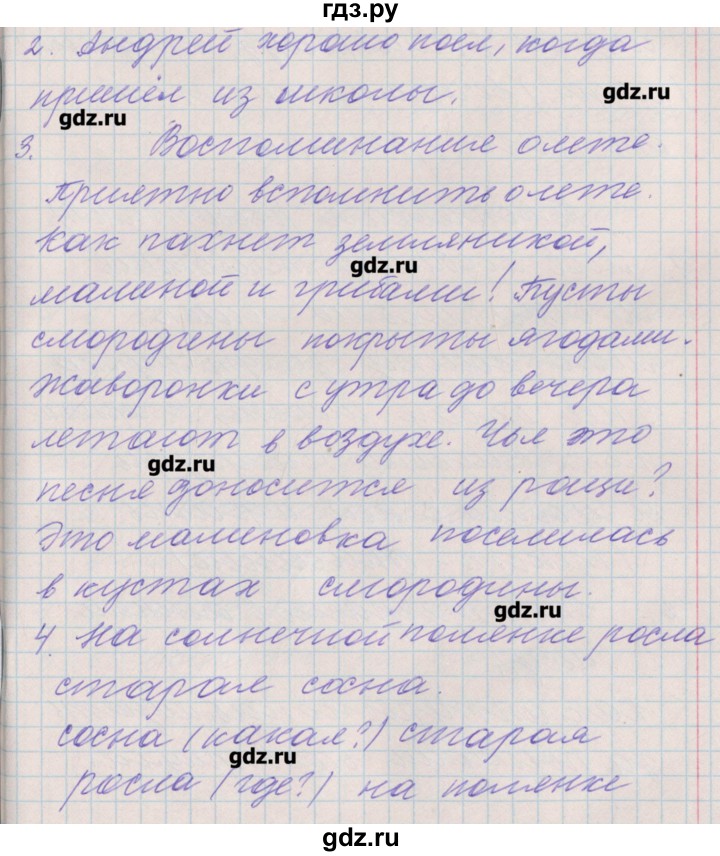 гдз.ру
2. Андрей хорошо поел, когда
пришёл из школы.
gdz.ru
gdz.ru
3. Воспоминания о лете.
Приятно вспомнить о лете.
Как пахнет земляникой,
gdz.ru
малиной и грибами! Пусты
смородины покрыты ягодами.
Жаворонки с утра до вечера
летают в воздухе. Чья это
gdz.ru
песня доносится из рощи?
Это малиновка поселилась
в кустах смородины.
gdz.ru
4. На солнечной полянке росла
старая сосна.
сосна (какая?) старая
gdz.ru
росла (где?) на полянке
gdz.ru